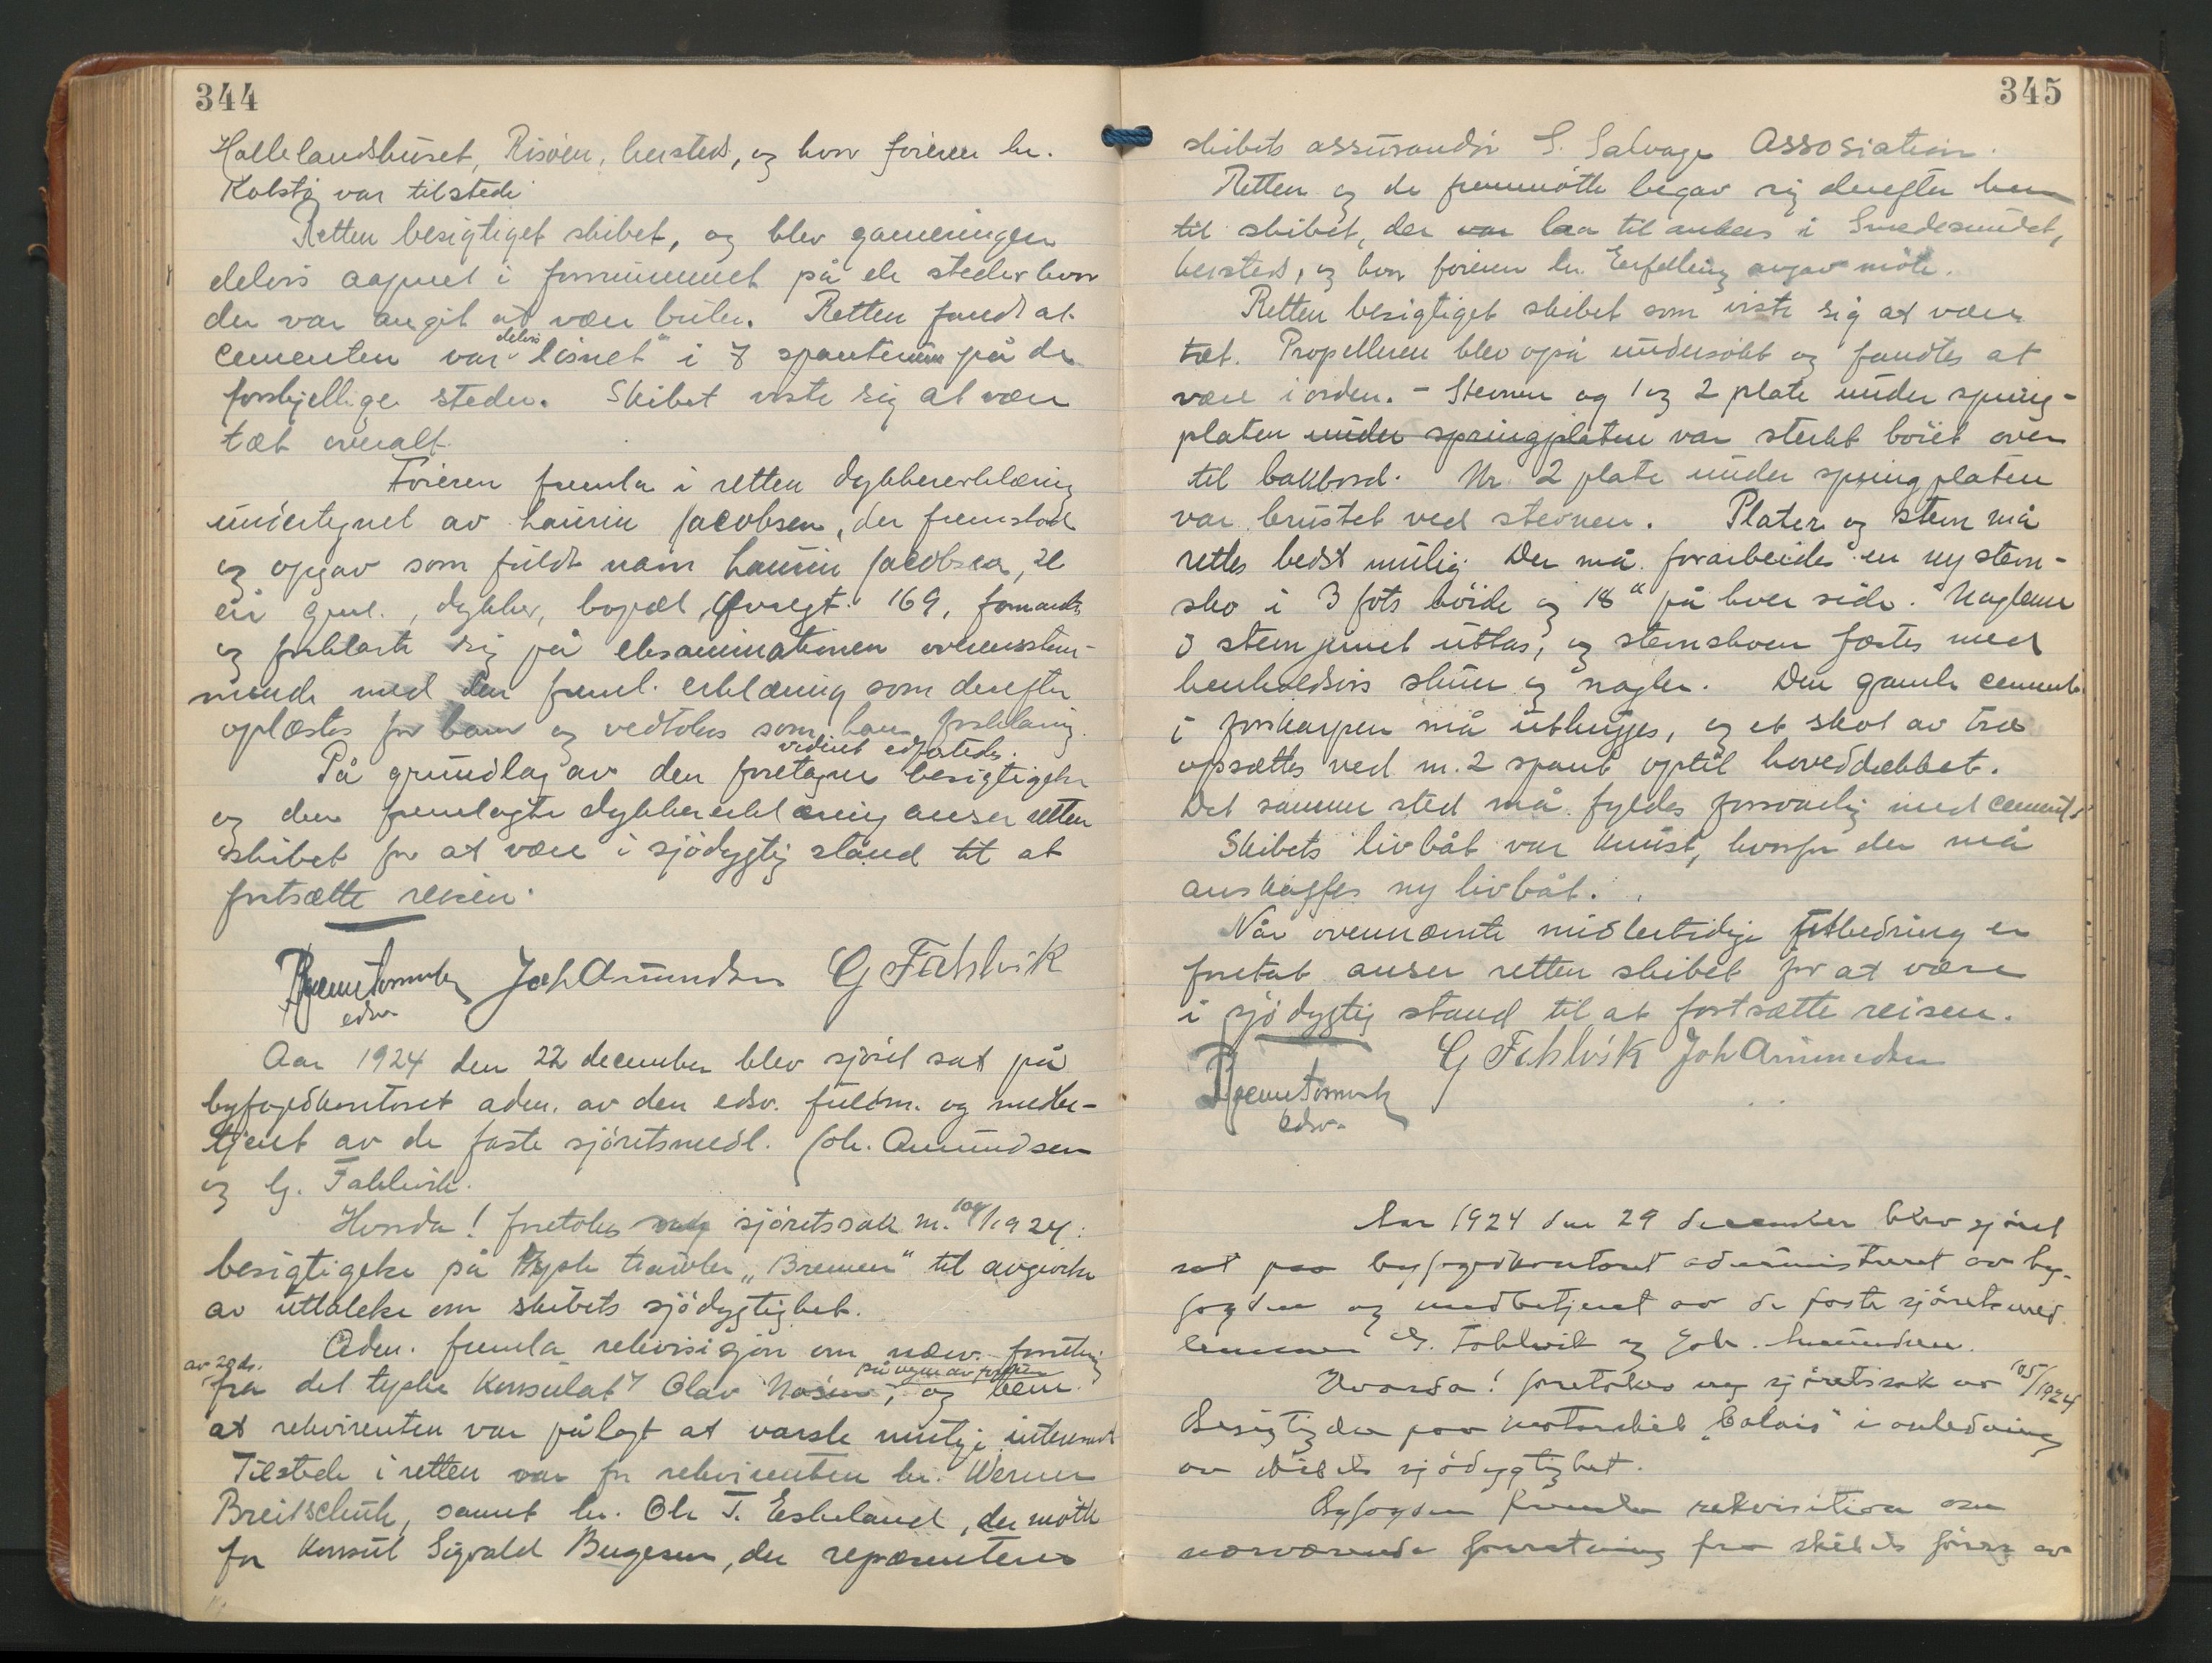 344
Hallelandshuset, Risöen, hersteds, og hvor föreren hr.
Kolstö var tilstede
Retten besigtiget skibet, og blev garneringen
delvis aapnet i forrummet på de steder hvor
der var angit at være buler. Retten fandt at
cementen var delvis "lösnet" i 7 spanterum på de
forskjellige steder. Skibet viste sig at være
tæt overalt.
Föreren fremla i retten dykkererklæring
undertegnet av Laurin Jacobsen, der fremstod
og opgav som fuldt navn Laurin Jacobsen, 
dykker, bopæl, 169, formantes
og forklarte sig på eksaminationen overensstem-
mende med den freml. erklæring som derefter
oplæstes for ham og vedtokes som hans forklaring.
vidnet edfæstedes.
På grundlag av den foretagne besigtigelse
og den fremlagte dykkererklæring anser retten
skibet for at være i sjödygtig stand til at
fortsætte reisen.
Joh Amundsen G Fahlvik
edsv.
Aar 1924 den 22 december blev sjöret sat på
byfogedkontoret adm. av den edsv. fuldm. og medbe-
tjent av de faste sjöretsmedl. Joh. Amundsen
og G. Fahlvik.
Hvorda! foretokes sjöretssak nr. 104/1924:
besigtigelse på tysk trawler "Bremen" til avgivelse
av uttalelse om skibets sjödygtighet.
Adm. fremla rekvisisjon om nærv. forretning
av 20 ds.
fra det tyske Konsulat v/ Olav på vegne av föreren, og bem.
at rekvirenten var pålagt at varsle mulige interessert
Tilstede i retten var for rekvirenten hr. Werner
Breitschuh, samt hr. Ole T. Eskeland, der mötte
for Konsul Sigvald Bergesen, der repræsenterer
345
skibets assurandör S. Salvage Assosiation.
Retten og de fremmötte begav sig derefter hen
til skibet, der var laa til ankers i Smedesundet,
hersteds, og hvor föreren hr. avgav möte.
Retten besigtiget skibet som viste sig at være
tæt. Propelleren blev også undersökt og fandtes at
være i orden. - Stevnen og 1 og 2 plate under spring-
platen under springplaten var sterkt böiet over
til bakbord. Nr. 2 plate under springplaten
var brustet ved stevnen. Plater og stevn må
rettes bedst mulig. Der må forarbeides en ny stevn-
sko i 3 fots höide og 18" på hver side. Naglene
i stevnjernet uttas, og stevnskoen fæstes med
henholdsvis skruer og nagler. Den gamle cement
i forskarpen må uthugges, og et skot av træ
opsættes ved nr. 2 spant optil hoveddækket.
Det samme sted må fyldes forsvarlig med cement.
Skibets livbåt var knust, hvorfor der må
anskaffes ny livbåt.
Når ovennævnte midlertidige utbedring er
foretat anser retten skibet for at være
i sjödygtig stand til at fortsætte reisen.
G Fahlvik Joh Amundsen
edsv.
Aar 1924 den 29 december blev sjöret
sat paa byfogedkontoret administreret av by-
fogden og medbetjent av de faste sjöretsmed
lemmer G. Fahlvik og Joh. Amundsen.
Hvorda! foretokes ny sjöretssak nr 105/1924
Besigtigelse paa motorskib "Calais" i anledning
av skibets sjödygtighet.
Byfogden fremla rekvisition om
nærværende forretning fra skibets förer av